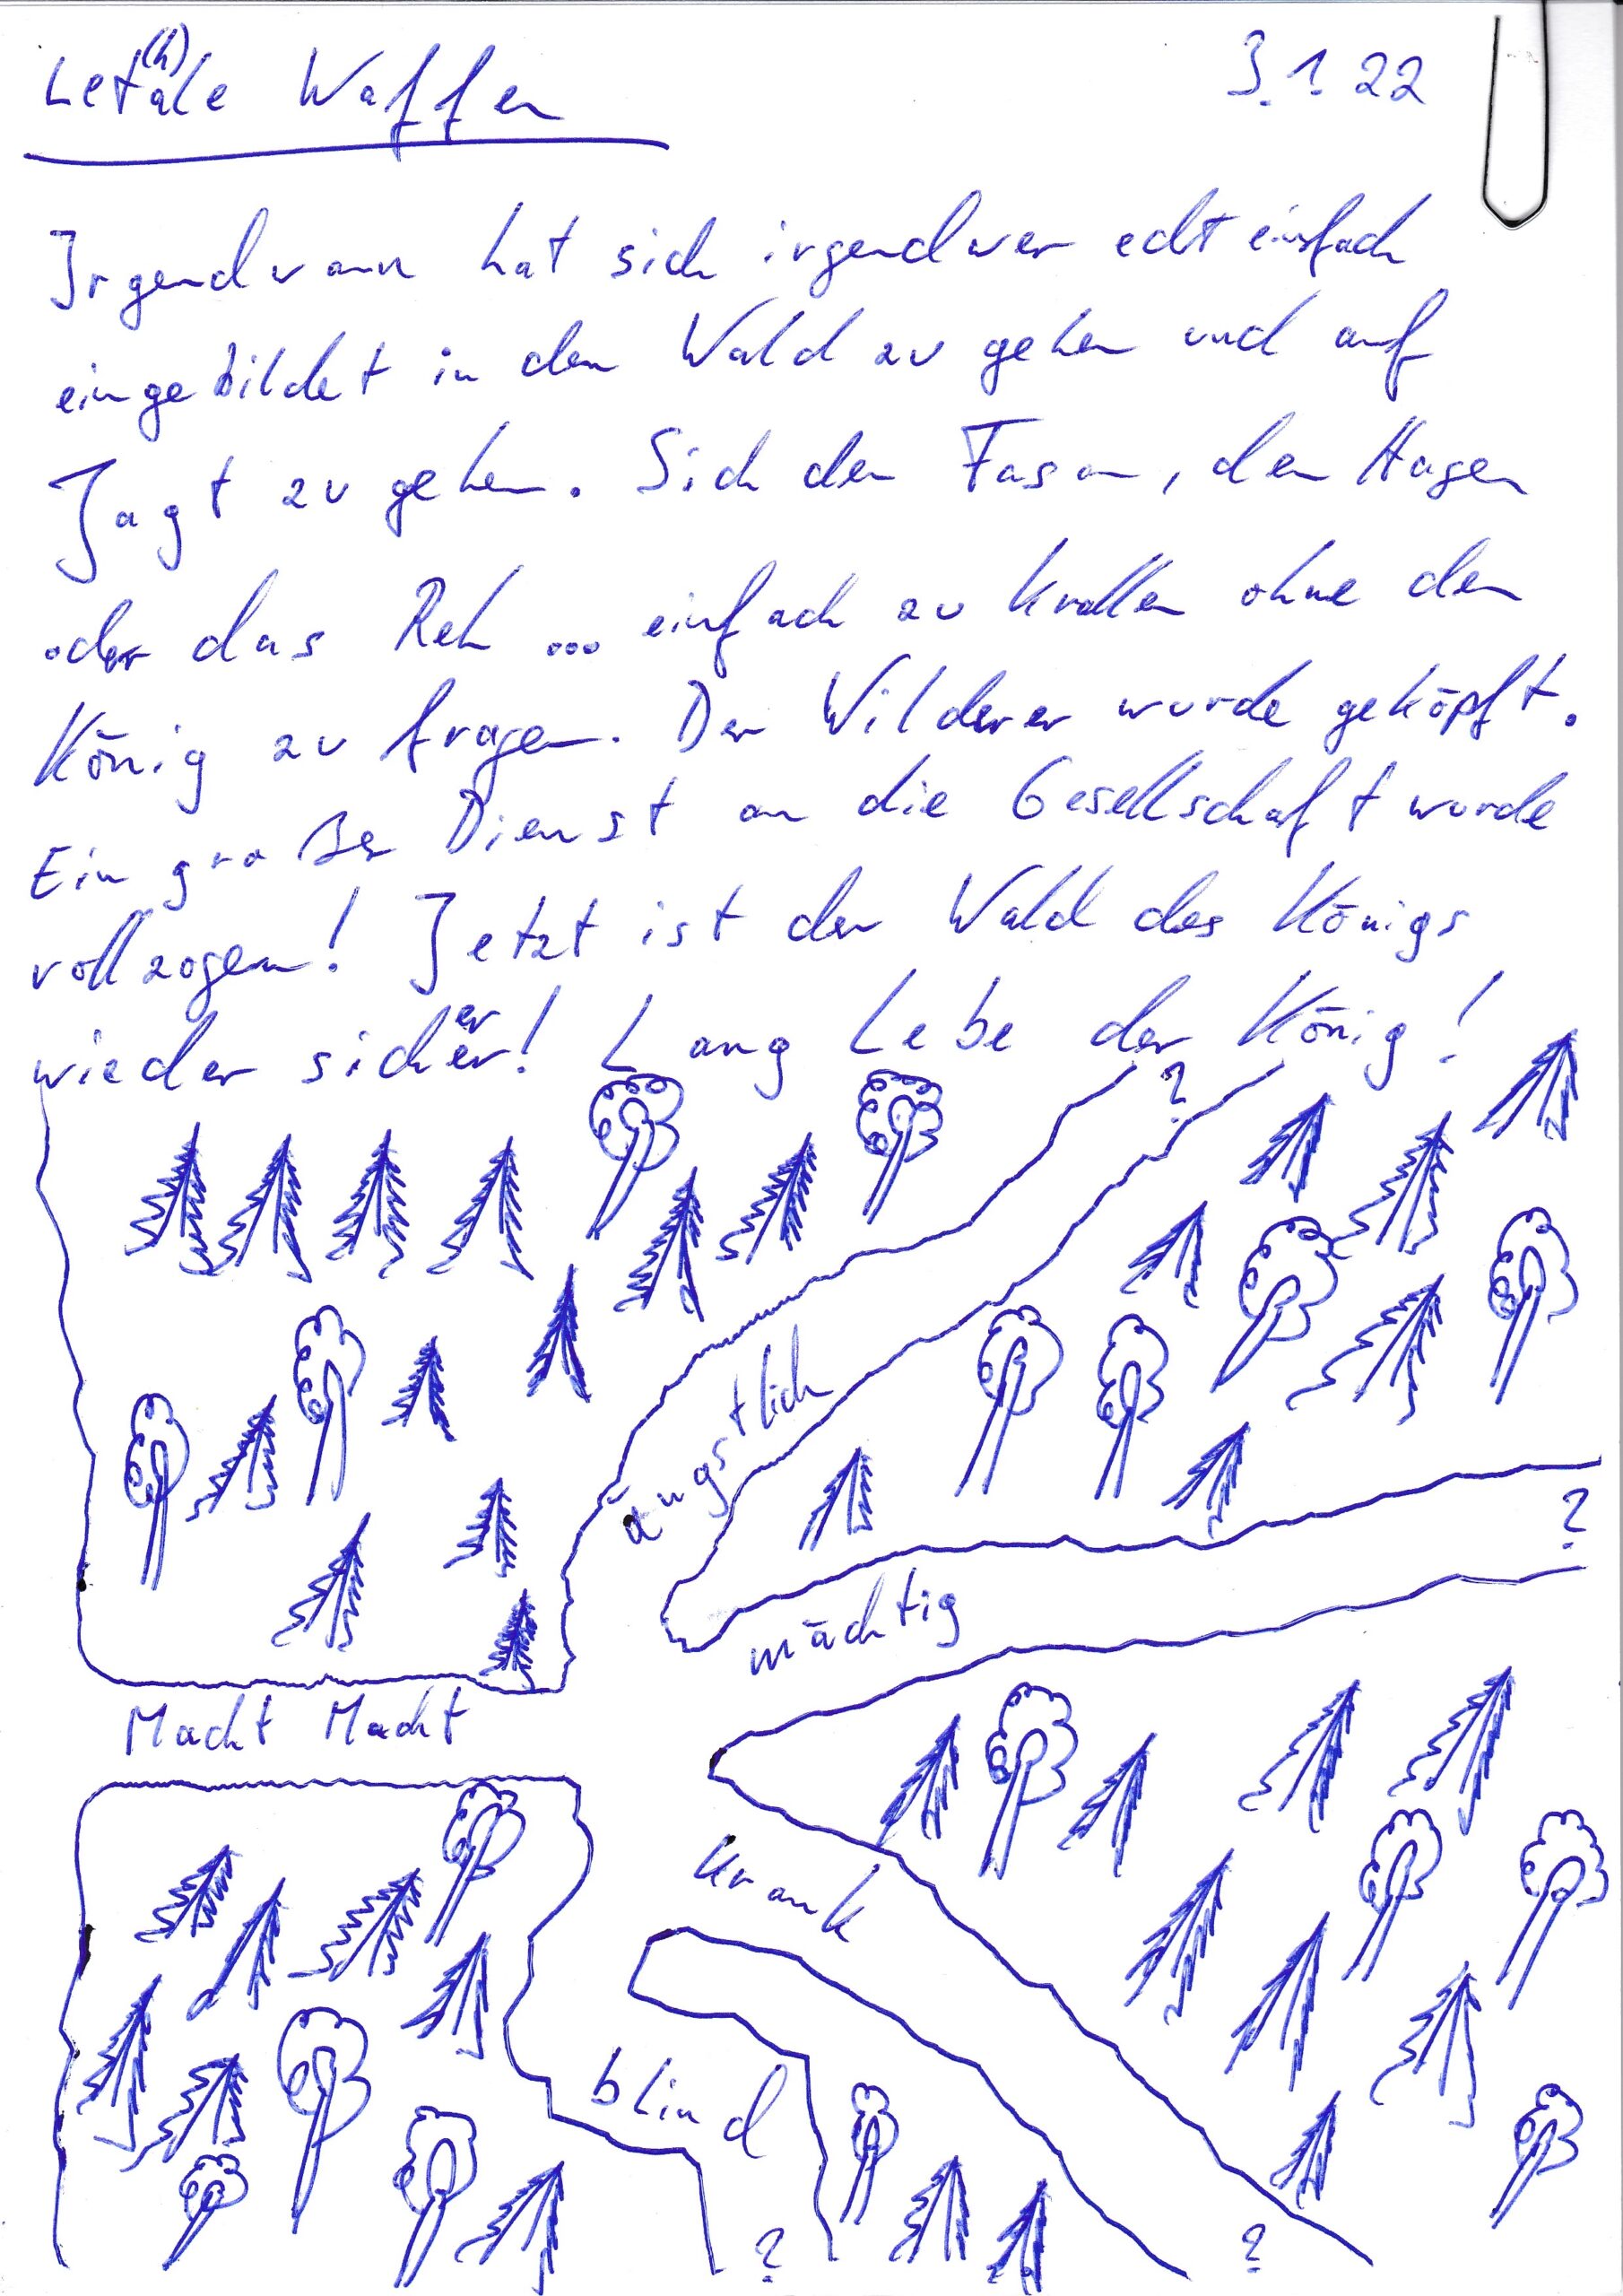 Let(h)ale Waffen
3.1.22
Irgendwann hat sich irgendwer echt einfach
eingebildet in den Wald zu gehen und auf
Jagt zu gehen. Sich den Fasan, den Hasen
oder das Reh ... einfach zu krallen ohne den
König zu fragen. Der Wilderer wurde geköpft.
Ein großer Dienst an die Gesellschaft wurde
vollzogen! Jetzt ist der Wald des Königs
wieder sicherer! Lang Lebe der König!
?
ängstlich
?
mächtig
Macht Macht
krank
blind
?
?